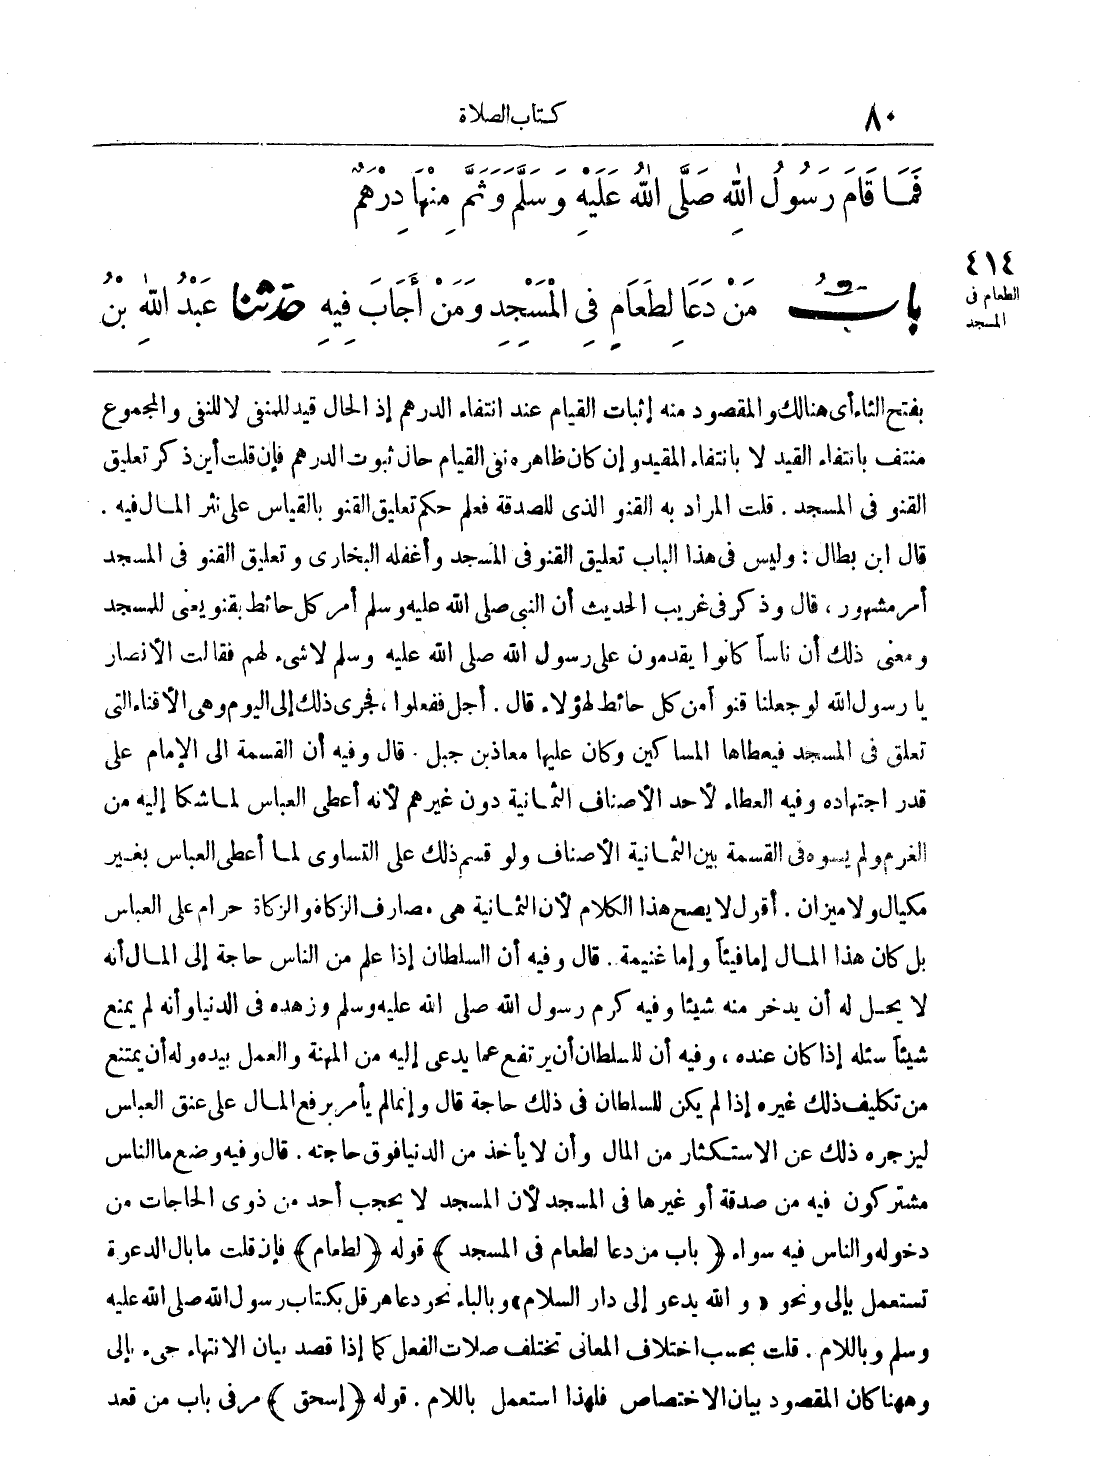 ٨٠ كتاب الصلاة
فَمَا قَامَ رَسُولُ اللهِ صَلَّى اللهُ عَلَيْهِ وَسَلَّمَ وَثَمَّ مِنْهَا دِرْهَمٌ
٤١٤
الطعام فى
المسجد
بابُ مَنْ دَعَا لِطَعَامٍ فِى الْمَسْجِدِ وَمَنْ أَجَابَ فِيهِ حَدَّثَنَا عَبْدُ اللهِ بْنُ
بفتح الثاء أى هنالك والمقصود منه إثبات القيام عند انتفاء الدرهم إذ الحال قيد للمنفى لا للنفى والمجموع
منتف بانتفاء القيد لا بانتفاء المقيد وإن كان ظاهره نفى القيام حال ثبوت الدرهم فإن قلت أين ذكر تعليق
القنو فى المسجد . قلت المراد به القنو الذى للصدقة فعلم حكم تعليق القنو بالقياس على نثر المال فيه .
قال ابن بطال : وليس فى هذا الباب تعليق القنو فى المسجد وأغفله البخارى وتعليق القنو فى المسجد
أمر مشهور ، قال وذكر فى غريب الحديث أن النبى صلى الله عليه وسلم أمر كل حائط بقنو يعنى للمسجد
ومعنى ذلك أن ناساً كانوا يقدمون على رسول الله صلى الله عليه وسلم لا شىء لهم فقالت الأنصار
يا رسول الله لو جعلنا قنو امن كل حائط لهؤلاء قال . أجل ففعلوا ، فجرى ذلك إلى اليوم وهى الأقناء التى
تعلق فى المسجد فيعطاها المساكين وكان عليها معاذ بن جبل . قال وفيه أن القسمة الى الإمام على
قدر اجتهاده وفيه العطاء لأحد الأصناف الثمانية دون غيرهم لأنه أعطى العباس لما شكا إليه من
الغرم ولم يسوه فى القسمة بين الثمانية الأصناف ولو قسم ذلك على التساوى لما أعطى العباس بغير
مكيال ولا ميزان . أقول لا يصح هذا الكلام لأن الثمانية هى مصارف الزكاة والزكاة حرام على العباس
بل كان هذا المال إما فيئاً وإما غنيمة . قال وفيه أن السلطان إذا علم من الناس حاجة إلى المال أنه
لا يحل له أن يدخر منه شيئا وفيه كرم رسول الله صلى الله عليه وسلم وزهده فى الدنيا وأنه لم يمنع
شيئاً سئله إذا كان عنده ، وفيه أن للسلطان أن يرتفع عما يدعى إليه من المهنة والعمل بيده وله أن يمتنع
من تكليف ذلك غيره إذا لم يكن للسلطان فى ذلك حاجة قال وإنما لم يأمر برفع المال على عنق العباس
ليزجره ذلك عن الاستكثار من المال وأن لا يأخذ من الدنيا فوق حاجته . قال وفيه وضع ما الناس
مشتركون فيه من صدقة أو غيرها فى المسجد لأن المسجد لا يحجب أحد من ذوى الحاجات من
دخوله والناس فيه سواء ﴿باب من دعا لطعام فى المسجد﴾ قوله ﴿لطعام﴾ فإن قلت ما بال الدعوة
تستعمل بإلى ونحو «والله يدعو إلى دار السلام» وبالباء نحو دعا هرقل بكتاب رسول الله صلى الله عليه
وسلم وباللام . قلت بحسب اختلاف المعانى تختلف صلات الفعل كما إذا قصد بيان الانتهاء جىء بإلى
وههنا كان المقصود بيان الاختصاص فلهذا استعمل باللام . قوله ﴿إسحق﴾ مر فى باب من قعد